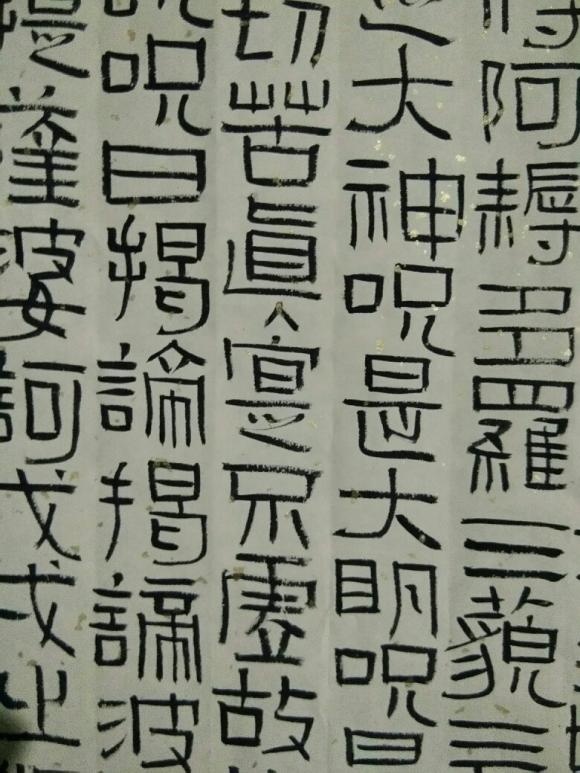 得阿耨多羅三藐三
是大神呪是大明呪是
切苦真寔不虛故
說呪曰揭諦揭諦波
提薩婆訶戊戌